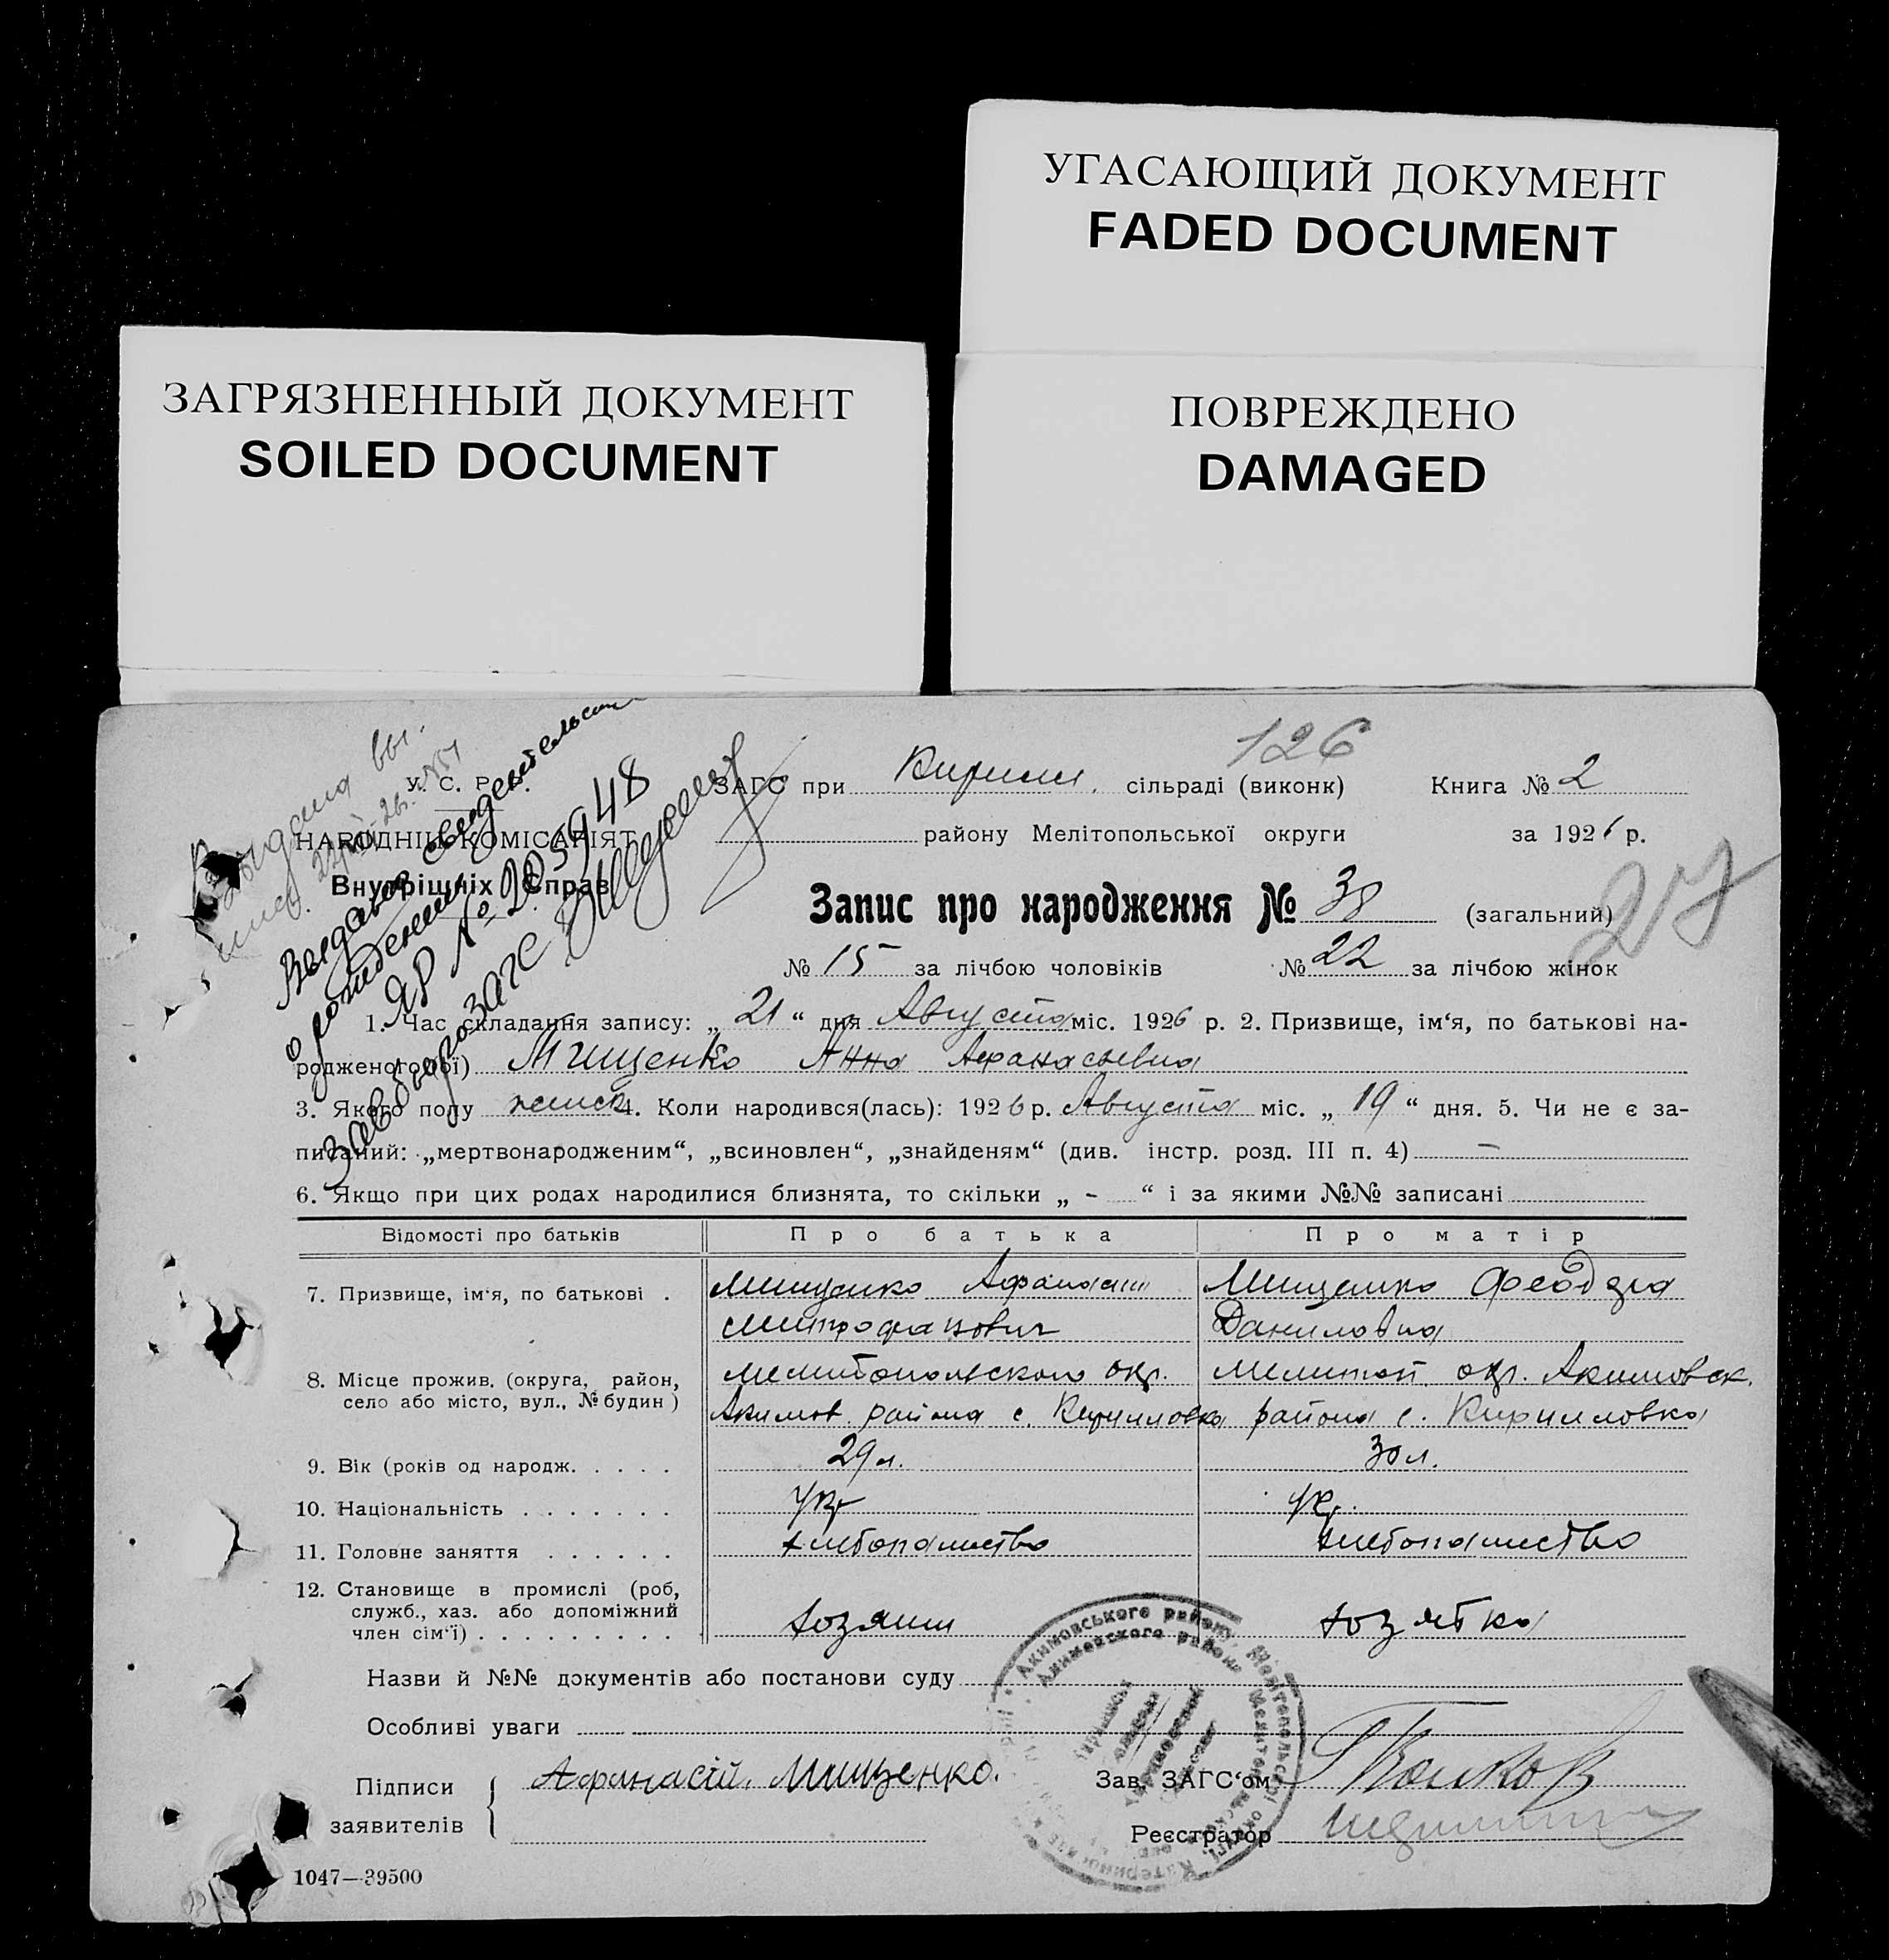 УГАСАЮЩИЙ ДОКУМЕНТ
FADED DOCUMENT
ЗАГРЯЗНЕННЫЙ ДОКУМЕНТ
SOILED DOCUMENT
ПОВРЕЖДЕНО
DAMAGED
126
У. С. Р. Р.
ЗАГС при сільраді (виконк) Книга № 2
НАРОДНІЙ КОМІСАРІЯТ
району Мелітопольської округи за 1926 р.
Внутрішніх Справ
27
Выдано свидетельство
о рождении
ЯР №
зав бюро ЗАГС
Запис про народження № (загальний)
№ 15 за лічбою чоловіків № 22 за лічбою жінок
1. Час складання запису: „ 21 “ дня Августа міс. 1926 р. 2. Призвище, ім‘я, по батькові на-
родженого(ої) Мищенко Анна Афанасьевна
3. Якого полу женск 4. Коли народився(лась): 1926 р. Августа міс. „ 19 “ дня. 5. Чи не є за-
питаний: „мертвонародженим“, „всиновлен“, „знайденям“ (див. інстр. розд. III п. 4) —
6. Якщо при цих родах народилися близнята, то скільки „ - “ і за якими №№ записані
Відомості про батьків Про батька Про матір
7. Призвище, ім‘я, по батькові . Мищенко Афанасий Мищенко Феодзia
Митрофанович Даниловна
8. Місце прожив. (округа, район, Мелитопольского окр. Мелитоп. окр. Акимовск.
село або місто, вул., № будин ) Акимов. района с. Кирилловка района с. Кирилловка
9. Вік (років од народж. . . . . 29 л. 30 л.
10. Національність . . . . . . . укр укр.
11. Головне заняття . . . . . . хлебопашество хлебопашество
12. Становище в промислі (роб,
служб., хаз. або допоміжний
член сім‘ї) . . . . . . . . . хозяин хозяйка
Назви й №№ документів або постанови суду
Особливі уваги
Підписи Афанасій. Мищенко. Зав. ЗАГС‘ом
заявителів Реєстратор
Акимовського району, Мелітопольської округи, Катеринос
Акимовского района Мелитопольск
1047—39500